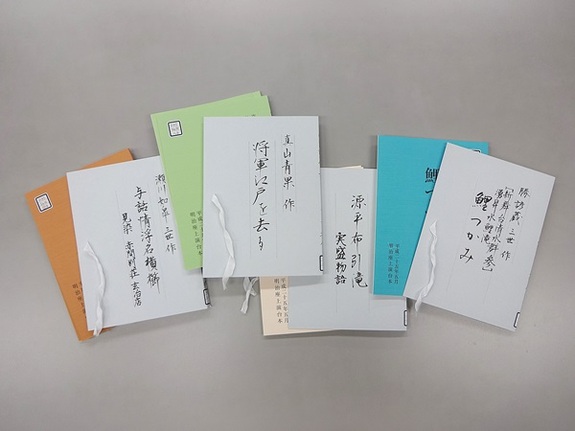 瀬川如皐 三世 作
与話情浮名横櫛
見染 赤間別荘 玄治店
真山青果 作
将軍江戸を去る
源平布引滝
実盛物語
平成二十五年五月
明治座上演台本
平成二十五年五月
明治座上演台本
鯉つ
平成二十五年五月
明治座上演台本
勝諺蔵 三世 作
鯉つかみ